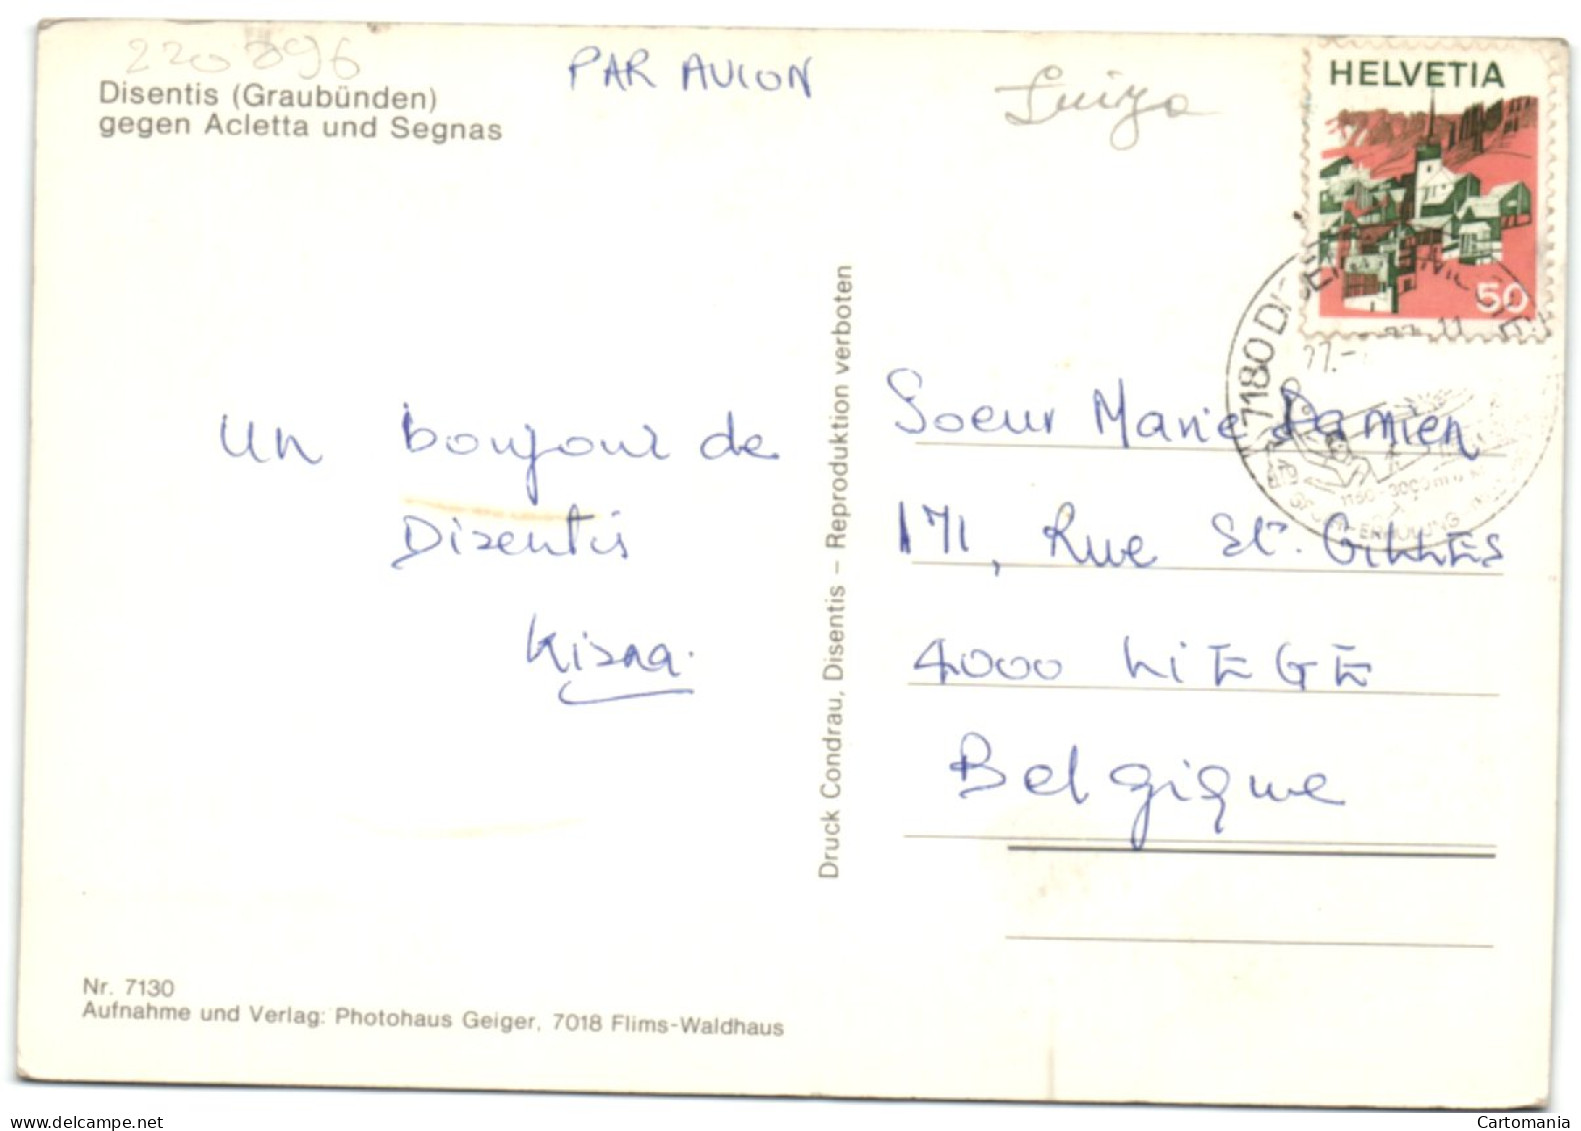 220896
Disentis (Graubünden)
gegen Acletta und Segnas
PAR AVION
Luiza
HELVETIA
50
7180 DISENTIS
un bonjour de
Disentis
Kisna.
Druck Condrau, Disentis – Reproduktion verboten
Soeur Marie Damien
171, Rue St. GILLES
4000 LiEGE
Belgique
Nr. 7130
Aufnahme und Verlag: Photohaus Geiger, 7018 Flims-Waldhaus
https://www.delcampe.net
Cartomania